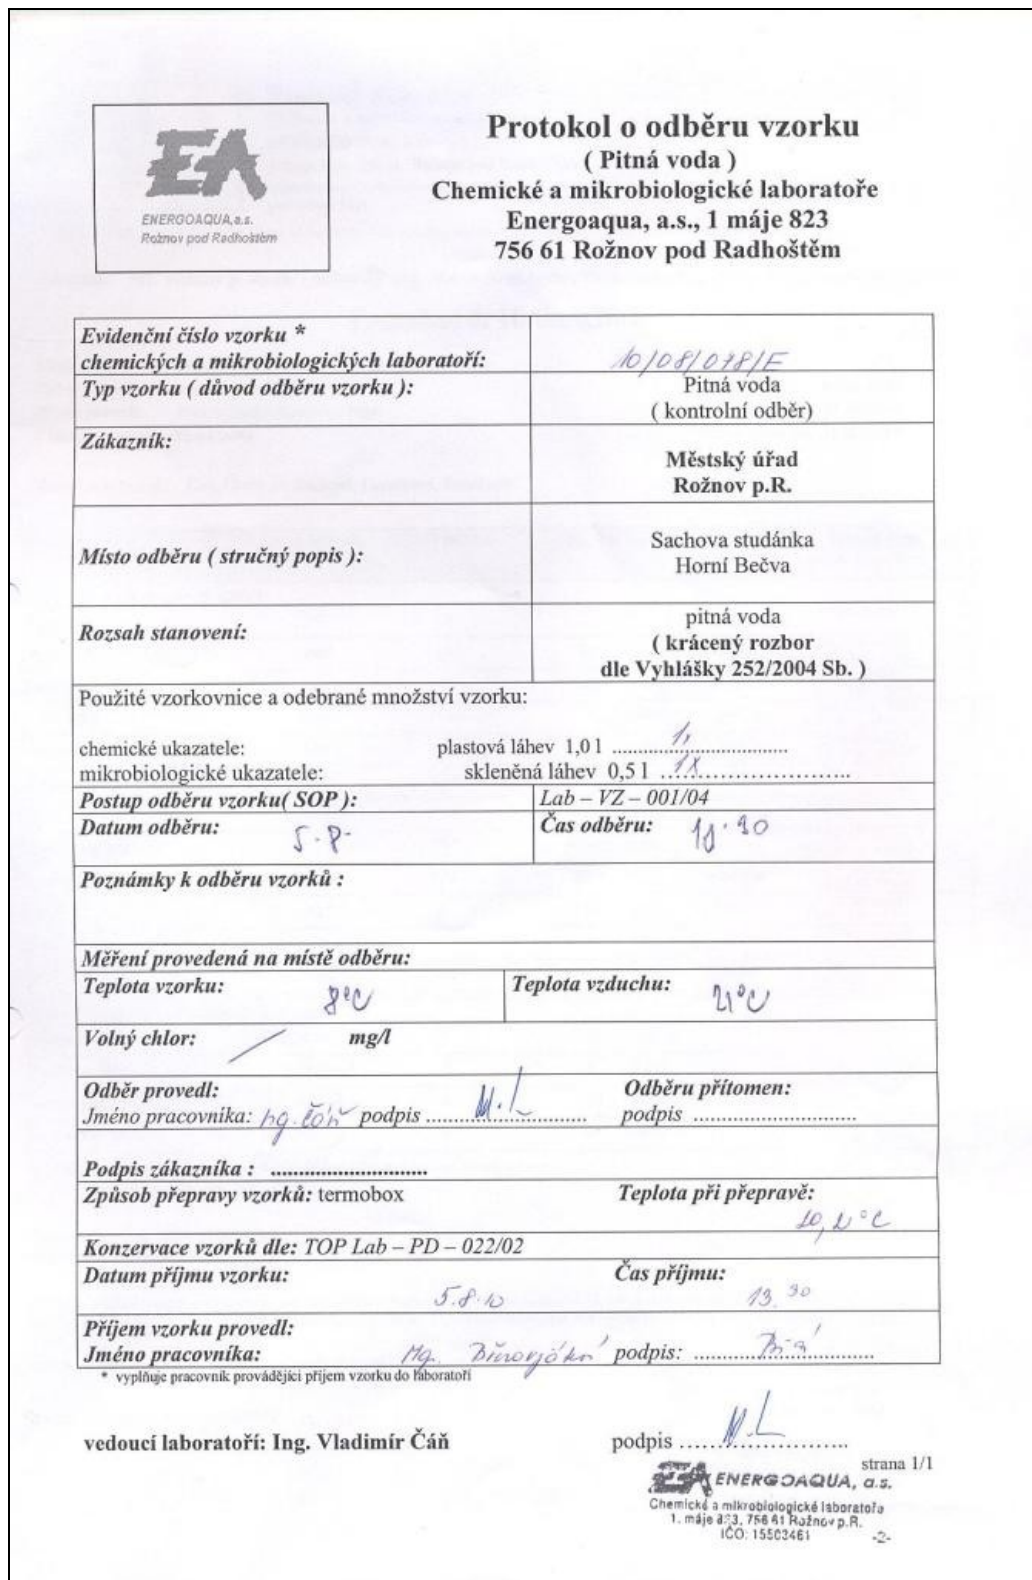 EA
ENERGOAQUA,a.s.
Rožnov pod Radhoštěm
Protokol o odběru vzorku
( Pitná voda )
Chemické a mikrobiologické laboratoře
Energoaqua, a.s., 1 máje 823
756 61 Rožnov pod Radhoštěm
Evidenční číslo vzorku *
chemických a mikrobiologických laboratoří: 10/08/078/E
Typ vzorku ( důvod odběru vzorku ): Pitná voda
( kontrolní odběr)
Zákazník:
Městský úřad
Rožnov p.R.
Místo odběru ( stručný popis ): Sachova studánka
Horní Bečva
Rozsah stanovení: pitná voda
( krácený rozbor
dle Vyhlášky 252/2004 Sb. )
Použité vzorkovnice a odebrané množství vzorku:
chemické ukazatele: plastová láhev 1,0 l ...................................
mikrobiologické ukazatele: skleněná láhev 0,5 l ...1x........................
Postup odběru vzorku( SOP ): Lab – VZ – 001/04
Datum odběru: 5.8. Čas odběru:
Poznámky k odběru vzorků :
Měření provedená na místě odběru:
Teplota vzorku: 8°C Teplota vzduchu: 21°C
Volný chlor: / mg/l
Odběr provedl: Odběru přítomen:
Jméno pracovníka: Ing. Čáň podpis ................................ podpis ................................
Podpis zákazníka : ................................
Způsob přepravy vzorků: termobox Teplota při přepravě:
°C
Konzervace vzorků dle: TOP Lab – PD – 022/02
Datum příjmu vzorku: Čas příjmu:
5.8.10 13.30
Příjem vzorku provedl:
Jméno pracovníka: podpis: ................................
* vyplňuje pracovník provádějící příjem vzorku do laboratoří
vedoucí laboratoří: Ing. Vladimír Čáň podpis ................................
strana 1/1
EA ENERGOAQUA, a.s.
Chemické a mikrobiologické laboratoře
1. máje 823, 756 61 Rožnov p.R.
IČO: 15503461 -2-